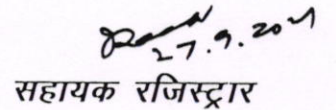 27.9.2021
सहायक रजिस्ट्रार